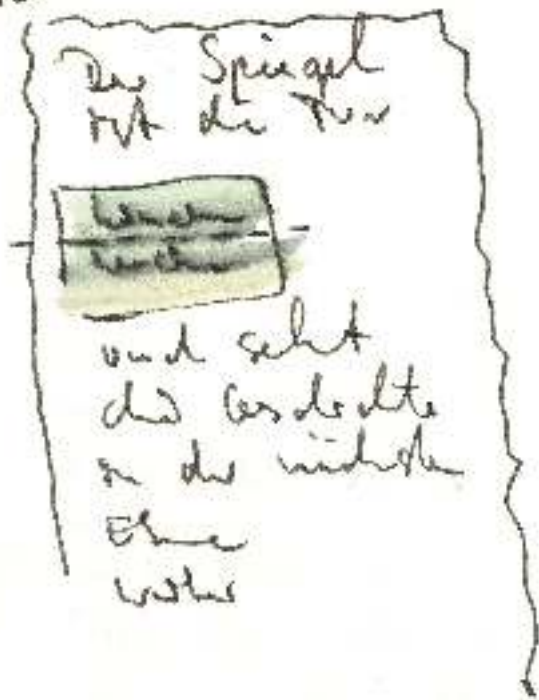 Der Spiegel
ist die Tür
und geht
die Geschichte
in der nächsten
Ebene
weiter